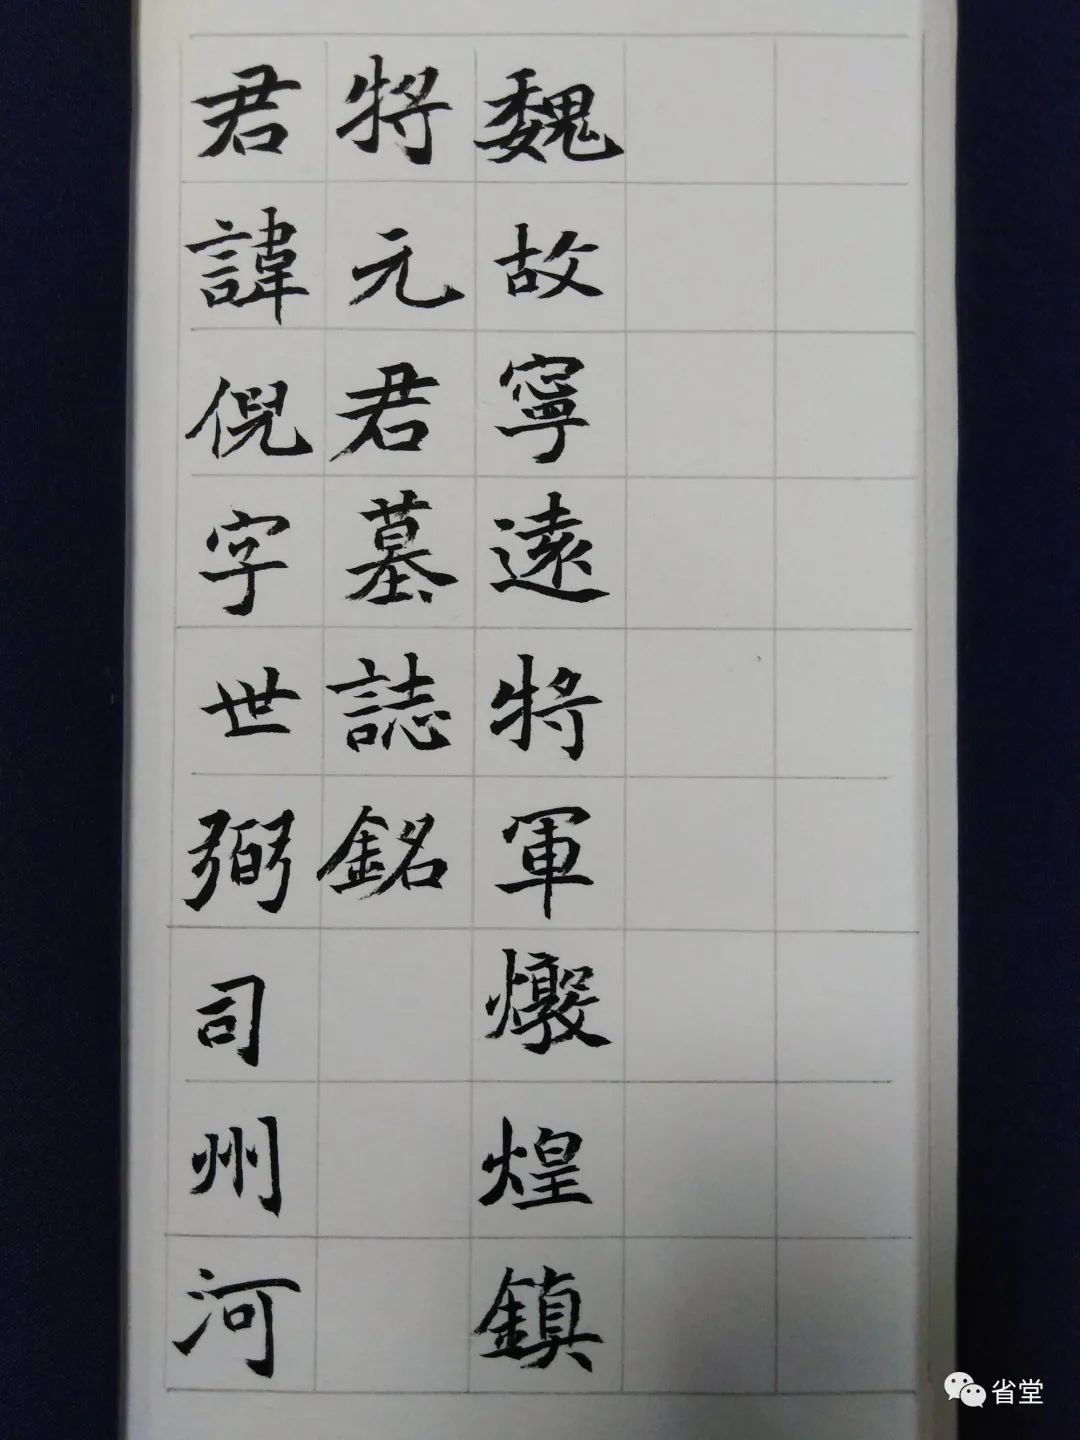 魏故寧遠將軍燉煌鎮
將元君墓誌銘
君諱倪字世弼司州河
省堂